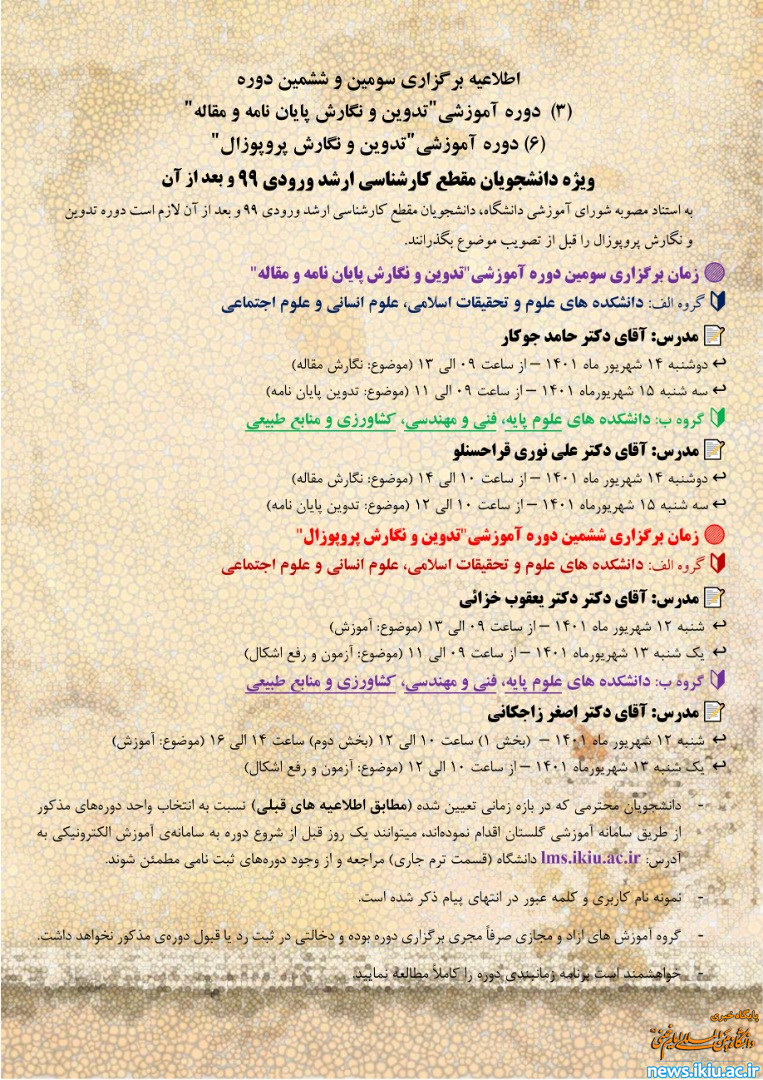 اطلاعیه برگزاری سومین و ششمین دوره
(۳) دوره آموزشی"تدوین و نگارش پایان نامه و مقاله"
(۶) دوره آموزشی"تدوین و نگارش پروپوزال"
ویژه دانشجویان مقطع کارشناسی ارشد ورودی ۹۹ و بعد از آن
به استناد مصوبه شورای آموزشی دانشگاه، دانشجویان مقطع کارشناسی ارشد ورودی ۹۹ و بعد از آن لازم است دوره تدوین
و نگارش پروپوزال را قبل از تصویب موضوع بگذرانند.
زمان برگزاری سومین دوره آموزشی"تدوین و نگارش پایان نامه و مقاله"
گروه الف: دانشکده های علوم و تحقیقات اسلامی، علوم انسانی و علوم اجتماعی
مدرس: آقای دکتر حامد جوکار
دوشنبه ۱۴ شهریور ماه ۱۴۰۱ – از ساعت ۰۹ الی ۱۳ (موضوع: نگارش مقاله)
سه شنبه ۱۵ شهریورماه ۱۴۰۱ – از ساعت ۰۹ الی ۱۱ (موضوع: تدوین پایان نامه)
گروه ب: دانشکده های علوم پایه، فنی و مهندسی، کشاورزی و منابع طبیعی
مدرس: آقای دکتر علی نوری قراحسنلو
دوشنبه ۱۴ شهریور ماه ۱۴۰۱ – از ساعت ۱۰ الی ۱۴ (موضوع: نگارش مقاله)
سه شنبه ۱۵ شهریورماه ۱۴۰۱ – از ساعت ۱۰ الی ۱۲ (موضوع: تدوین پایان نامه)
زمان برگزاری ششمین دوره آموزشی"تدوین و نگارش پروپوزال"
گروه الف: دانشکده های علوم و تحقیقات اسلامی، علوم انسانی و علوم اجتماعی
مدرس: آقای دکتر دکتر یعقوب خزائی
شنبه ۱۲ شهریور ماه ۱۴۰۱ – از ساعت ۰۹ الی ۱۳ (موضوع: آموزش)
یک شنبه ۱۳ شهریورماه ۱۴۰۱ – از ساعت ۰۹ الی ۱۱ (موضوع: آزمون و رفع اشکال)
گروه ب: دانشکده های علوم پایه، فنی و مهندسی، کشاورزی و منابع طبیعی
مدرس: آقای دکتر اصغر زاجکانی
شنبه ۱۲ شهریور ماه ۱۴۰۱ – (بخش ۱) ساعت ۱۰ الی ۱۲ (بخش دوم) ساعت ۱۴ الی ۱۶ (موضوع: آموزش)
یک شنبه ۱۳ شهریورماه ۱۴۰۱ – از ساعت ۱۰ الی ۱۲ (موضوع: آزمون و رفع اشکال)
- دانشجویان محترمی که در بازه زمانی تعیین شده (مطابق اطلاعیه های قبلی) نسبت به انتخاب واحد دوره‌های مذکور
از طریق سامانه آموزشی گلستان اقدام نموده‌اند، میتوانند یک روز قبل از شروع دوره به سامانه‌ی آموزش الکترونیکی به
آدرس: lms.ikiu.ac.ir دانشگاه (قسمت ترم جاری) مراجعه و از وجود دوره‌های ثبت نامی مطمئن شوند.
- نمونه نام کاربری و کلمه عبور در انتهای پیام ذکر شده است.
- گروه آموزش های ازاد و مجازی صرفاً مجری برگزاری دوره بوده و دخالتی در ثبت رد یا قبول دوره‌ی مذکور نخواهد داشت.
- خواهشمند است برنامه زمانبندی دوره را کاملاً مطالعه نمایید.
پایگاه خبری
دانشگاه بین المللی امام خمینی
news.ikiu.ac.ir